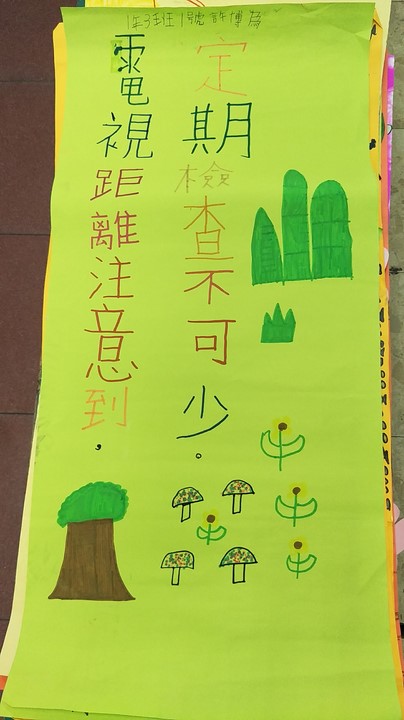 1年3班1號許博
電視距離注意到，
定期檢查不可少。